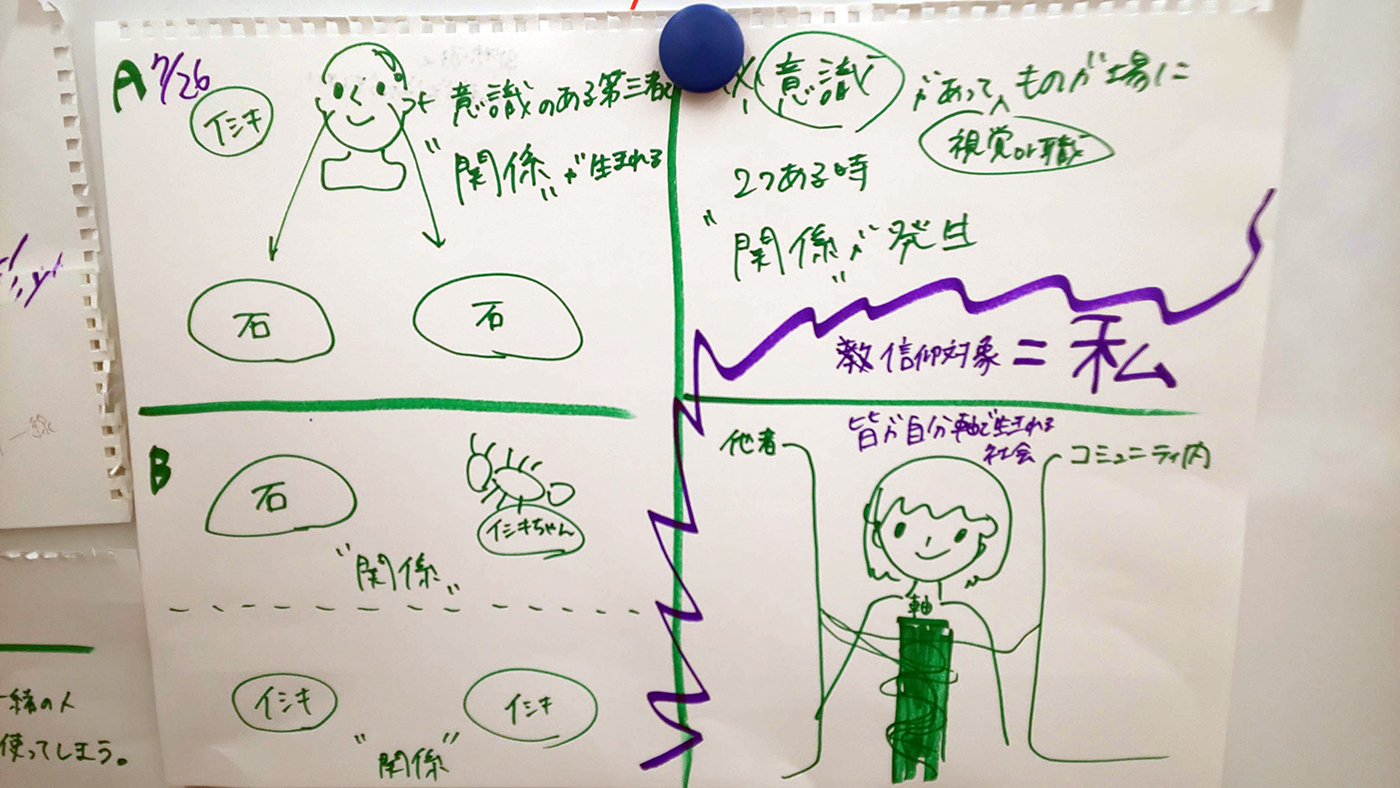 A 7/26
イシキ
意識のある第三者で
"関係"が生まれる
石
石
B
石
イシキちゃん
"関係"
イシキ
イシキ
"関係"
※意識があって、ものが場に
視覚or聴
2つある時
"関係"が発生
教 信仰対象=私
皆が自分軸で生まれる
社会
他者
コミュニティ内
軸
一緒の人
使ってしまう。